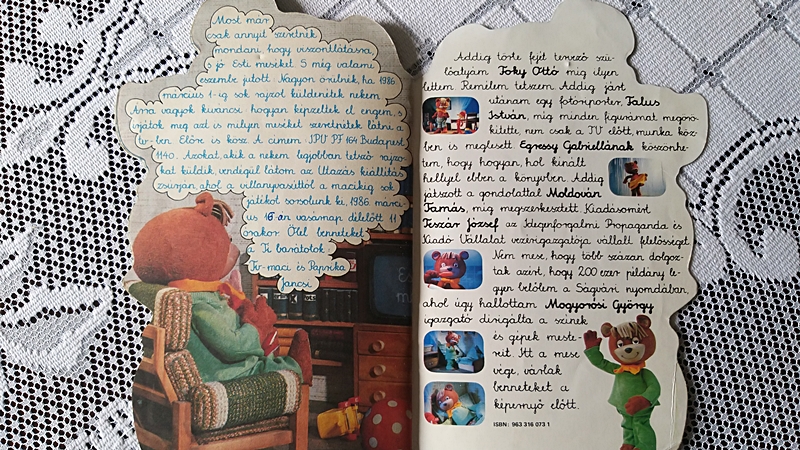 Most már
csak annyit szeretnék
mondani, hogy viszontlátásra,
s jó Esti meséket. S még valami
eszembe jutott. Nagyon örülnék, ha 1986.
március 1-ig sok rajzot küldenétek nekem
Arra vagyok kíváncsi, hogyan képzeltek el engem, s
írjátok meg azt is milyen meséket szeretnétek látni a
tv-ben. Előre is kösz. A címem: IPV PF 164 Budapest,
1140. Azokat, akik a nekem legjobban tetsző rajzo-
kat küldik, vendégül látom az Utazás kiállítás
zsúrján, ahol a villanyvasúttól a macikig sok
játékot sorsolunk ki, 1986. márci-
us 16-án vasárnap délelőtt 11
órakor. Ölel benneteket
a Ti barátotok
Tv-maci és Paprika
Jancsi
Es
m
Addig törte fejét tervező szü-
lőatyám Foky Ottó míg ilyen
lettem. Remélem tetszem. Addig járt
utánam egy fotóriporter, Falus
István, míg minden figurámat megörö-
kítette, nem csak a TV előtt, munka köz-
ben is meglesett. Egressy Gabriellának köszönhe-
tem, hogy hogyan, hol kínált
hellyel ebben a könyvben. Addig
játszott a gondolattal Moldován
Tamás, míg megszerkesztett. Kiadásomért
Teszár József az Idegenforgalmi Propaganda és
Kiadó Vállalat vezérigazgatója vállalt felelősséget.
Nem mese, hogy több százan dolgoz-
tak azért, hogy 200 ezer példány le-
gyen belőlem a Ságvári nyomdában,
ahol úgy hallottam Mogyorósi György
igazgató dirigálta a színek
és gépek meste-
reit. Itt a mese
vége, várlak
benneteket a
képernyő előtt.
ISBN: 963 316 073 1